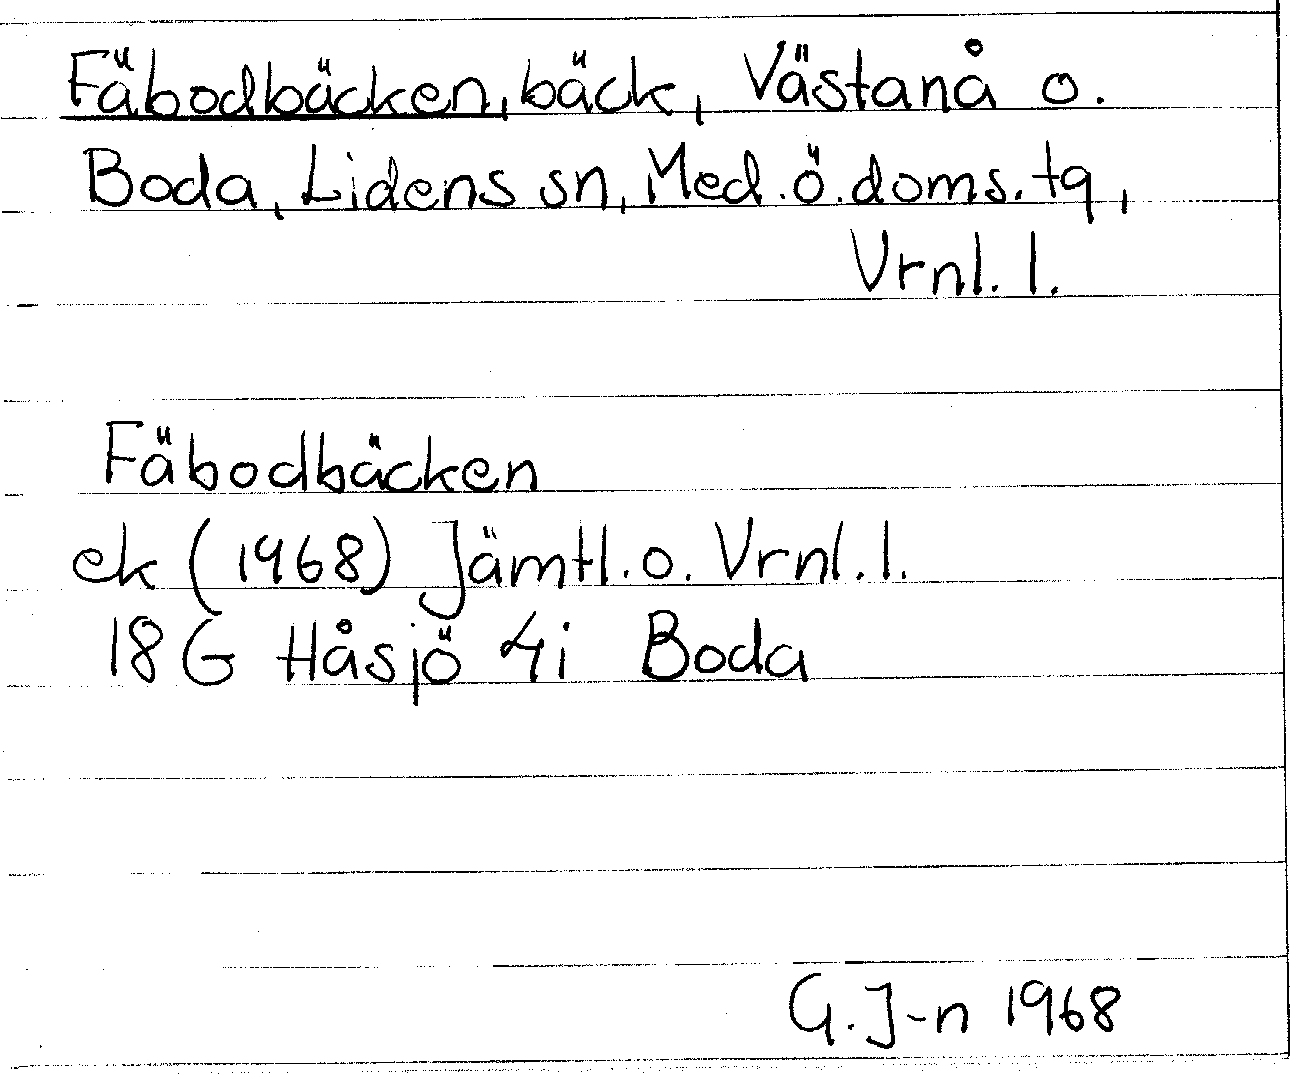 Fäbodbäcken, bäck, Västanå o.
Boda, Lidens sn, Med.ö.doms.tg,
Vrnl. l.
Fäbodbäcken
ek (1968) Jämtl.o. Vrnl.l.
18G Håsjö 4i Boda
G.J-n 1968